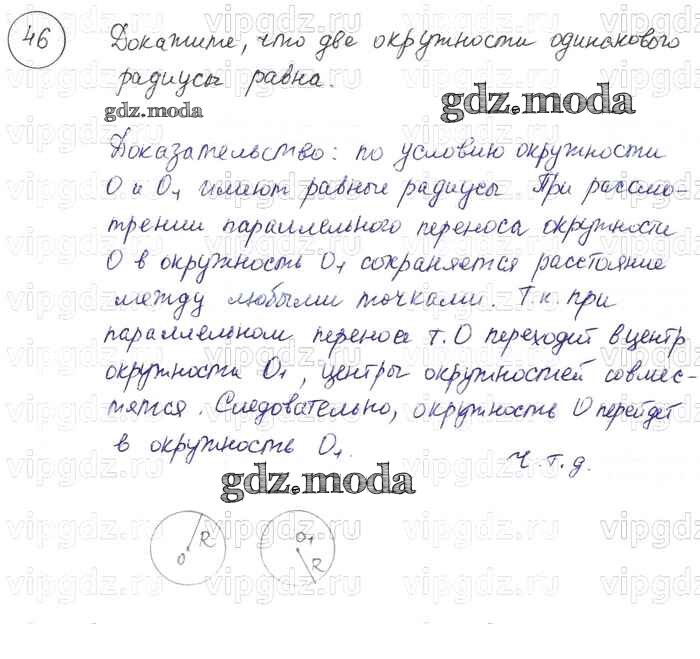 46
Докажите, что две окружности одинакового
радиуса равны.
gdz.moda
gdz.moda
Доказательство: по условию окружности
O и O₁ имеют равные радиусы При рассмо-
трении параллельного переноса окружности
O в окружность O₁ сохраняется расстояние
между любыми точками. Т.к. при
параллельном переносе т. O переходит в центр
окружности O₁, центры окружностей совмес-
тятся. Следовательно, окружность O перейдет
в окружность O₁.
ч.т.д.
gdz.moda
R
O
O₁
R
vipgdz.ru